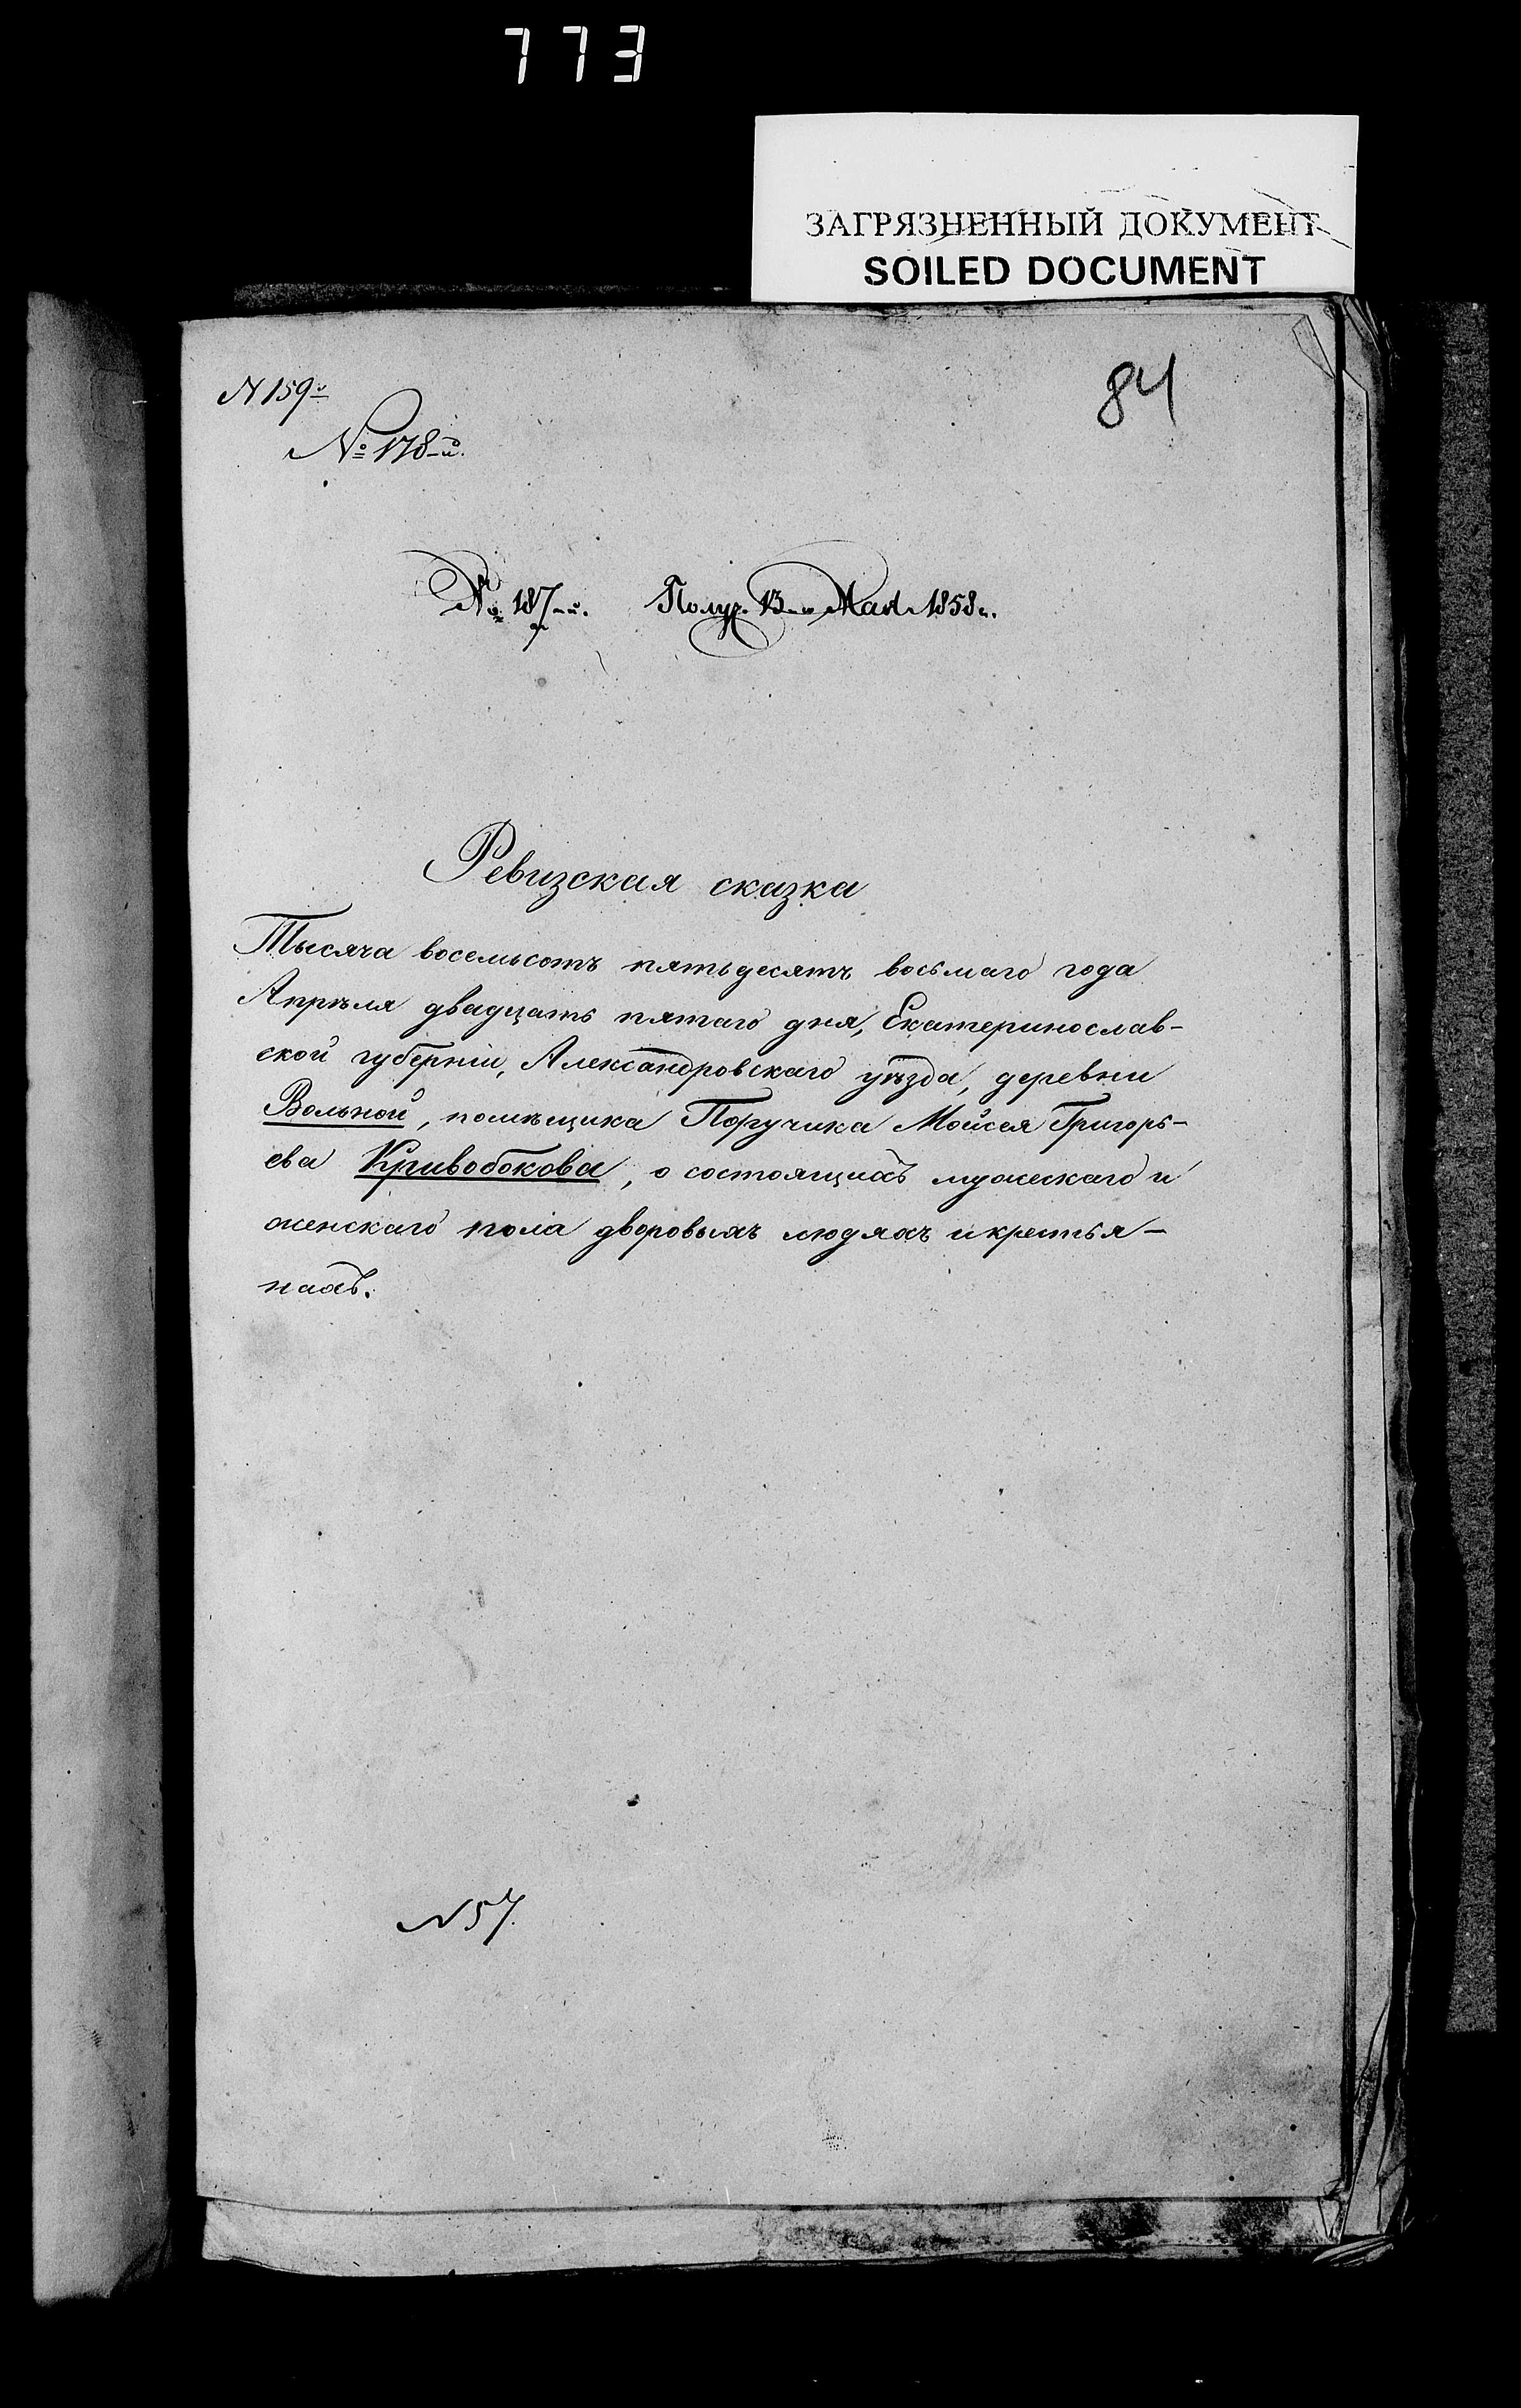 773
ЗАГРЯЗНЕННЫЙ ДОКУМЕНТ
SOILED DOCUMENT
84
N 159й
№ 178-й.
№ 187-й. Получ. 13-го Мая 1858 г.
Ревизская сказка
Тысяча восемьсотъ пятьдесятъ восьмаго года
Апрѣля двадцать пятаго дня, Екатеринослав-
ской губерніи, Александровскаго уѣзда, деревни
Вольной, помѣщика Поручика Мойсея Григорь-
ева Кривобокова, о состоящихъ мужескаго и
женскаго пола дворовыхъ людяхъ и крестья-
нахъ.
N 57.